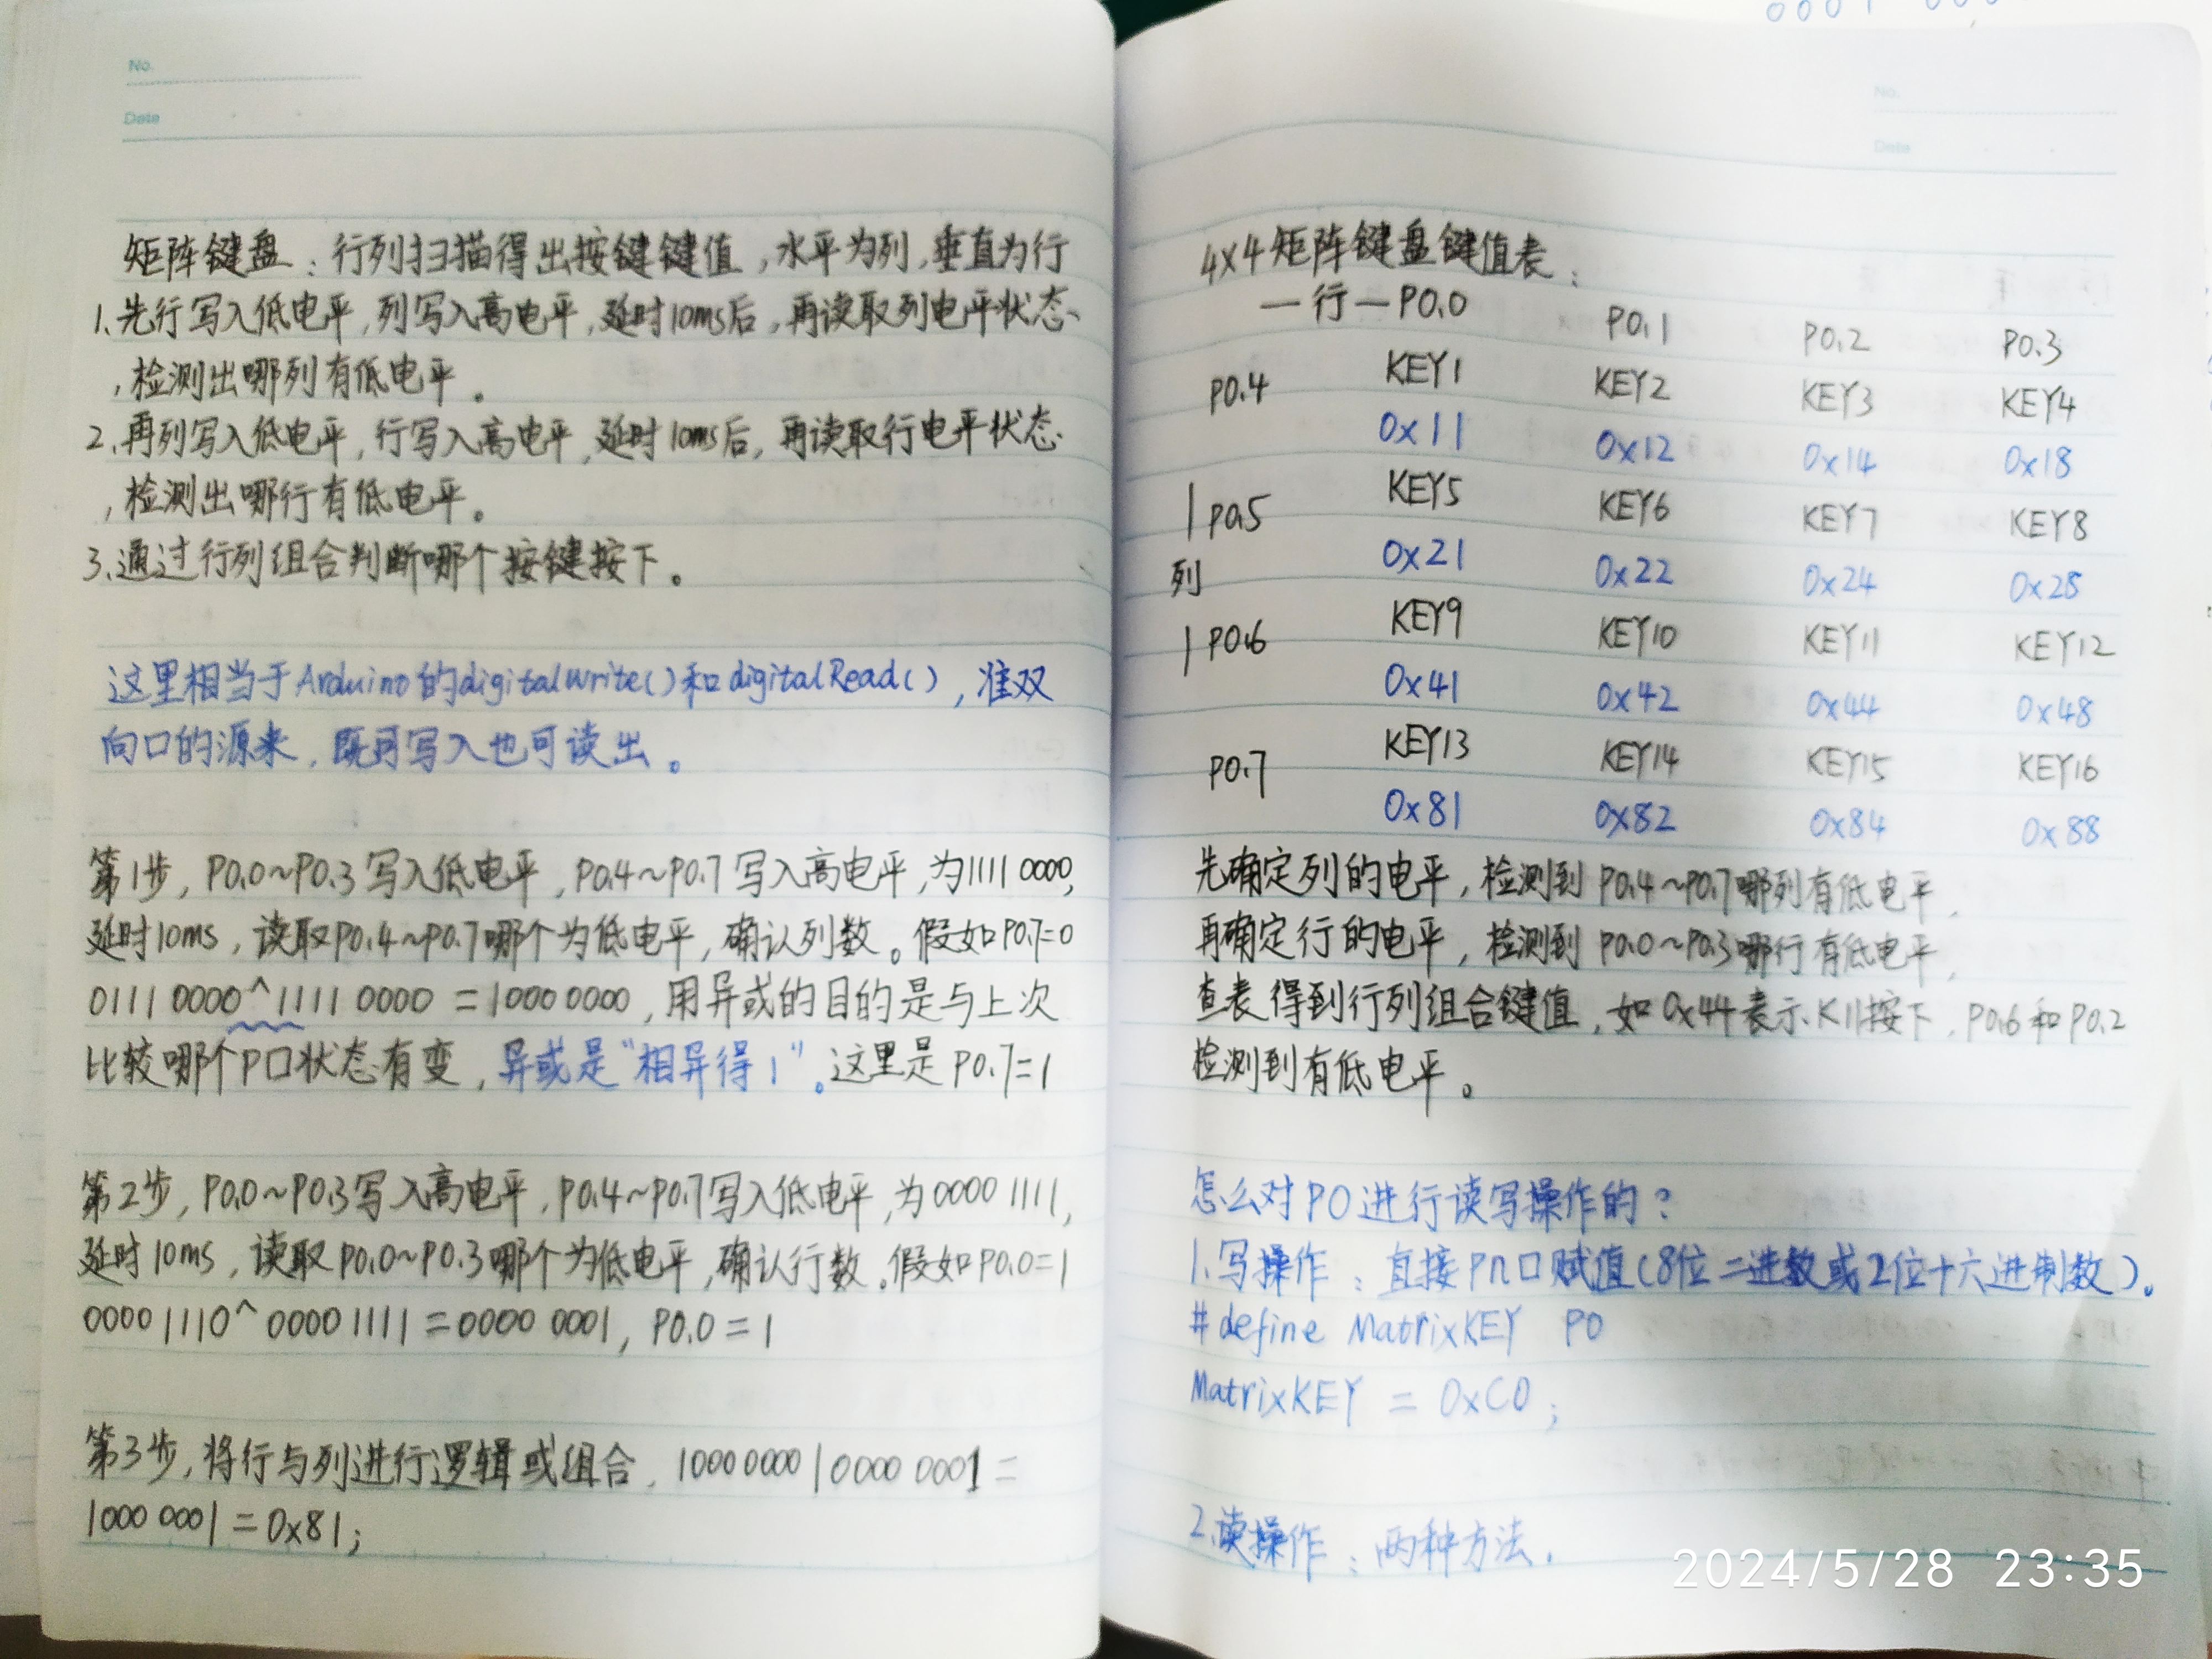 No.
Date
矩阵键盘：行列扫描得出按键键值，水平为列，垂直为行
1.先行写入低电平，列写入高电平，延时10ms后，再读取列电平状态
，检测出哪列有低电平。
2.再列写入低电平，行写入高电平，延时10ms后，再读取行电平状态
，检测出哪行有低电平。
3.通过行列组合判断哪个按键按下。
这里相当于Arduino的digitalwrite()和digitalRead()，准双
向口的源来，既可写入也可读出。
第1步，P0.0~P0.3写入低电平，P0.4~P0.7写入高电平，为1111 0000，
延时10ms，读取P0.4~P0.7哪个为低电平，确认列数。假如P0.7=0
0111 0000^1111 0000 =1000 0000，用异或的目的是与上次
比较哪个P口状态有变，异或是“相异得1”。这里是P0.7=1
第2步，P0.0~P0.3写入高电平，P0.4~P0.7写入低电平，为0000 1111，
延时10ms，读取P0.0~P0.3哪个为低电平，确认行数。假如P0.0=1
0000 1110^ 0000 1111 =0000 0001，P0.0=1
第3步，将行与列进行逻辑或组合，1000 0000 | 0000 0001 =
1000 0001=0x81;
0001 000
No.
Date
4x4矩阵键盘键值表：
—行—P0.0 P0.1 P0.2 P0.3
P0.4 KEY1 KEY2 KEY3 KEY4
0x11 0x12 0x14 0x18
| P0.5 KEY5 KEY6 KEY7 KEY8
列 0x21 0x22 0x24 0x28
| P0.6 KEY9 KEY10 KEY11 KEY12
0x41 0x42 0x44 0x48
P0.7 KEY13 KEY14 KEY15 KEY16
0x81 0x82 0x84 0x88
先确定列的电平，检测到P0.4~P0.7哪列有低电平，
再确定行的电平，检测到P0.0~P0.3哪行有低电平，
查表得到行列组合键值，如0x44表示K11按下，P0.6和P0.2
检测到有低电平。
怎么对P0进行读写操作的？
1.写操作：直接Pn口赋值(8位二进数或2位十六进制数)。
#define MatrixKEY P0
MatrixKEY = 0xC0;
2.读操作：两种方法.
2024/5/28 23:35